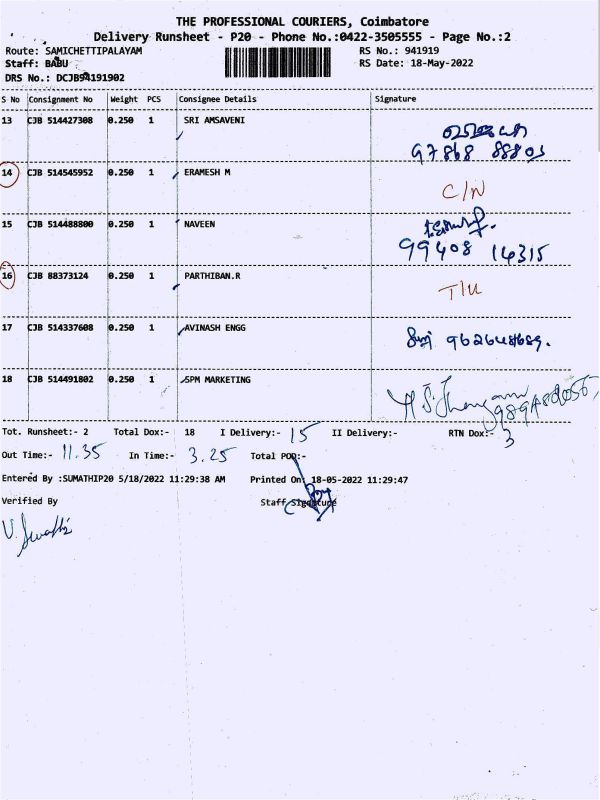 THE PROFESSIONAL COURIERS, Coimbatore
Delivery Runsheet - P20 - Phone No.:0422-3505555 - Page No.:2
Route: SAMICHETTIPALAYAM RS No.: 941919
Staff: BABU RS Date: 18-May-2022
DRS No.: DCJB94191902
S No Consignment No Weight PCS Consignee Details Signature
13 CJB 514427308 0.250 1 SRI AMSAVENI
97868 88803
14 CJB 514545952 0.250 1 ERAMESH M
C/N
15 CJB 514488800 0.250 1 NAVEEN
99408 14315
16 CJB 88373124 0.250 1 PARTHIBAN.R
T/U
17 CJB 514337608 0.250 1 AVINASH ENGG
18 CJB 514491802 0.250 1 SPM MARKETING
Tot. Runsheet:- 2 Total Dox:- 18 I Delivery:- 15 II Delivery:- RTN Dox:- 3
Out Time:- 11.35 In Time:- 3.25 Total POD:-
Entered By :SUMATHIP20 5/18/2022 11:29:38 AM Printed On: 18-05-2022 11:29:47
Verified By Staff Signature